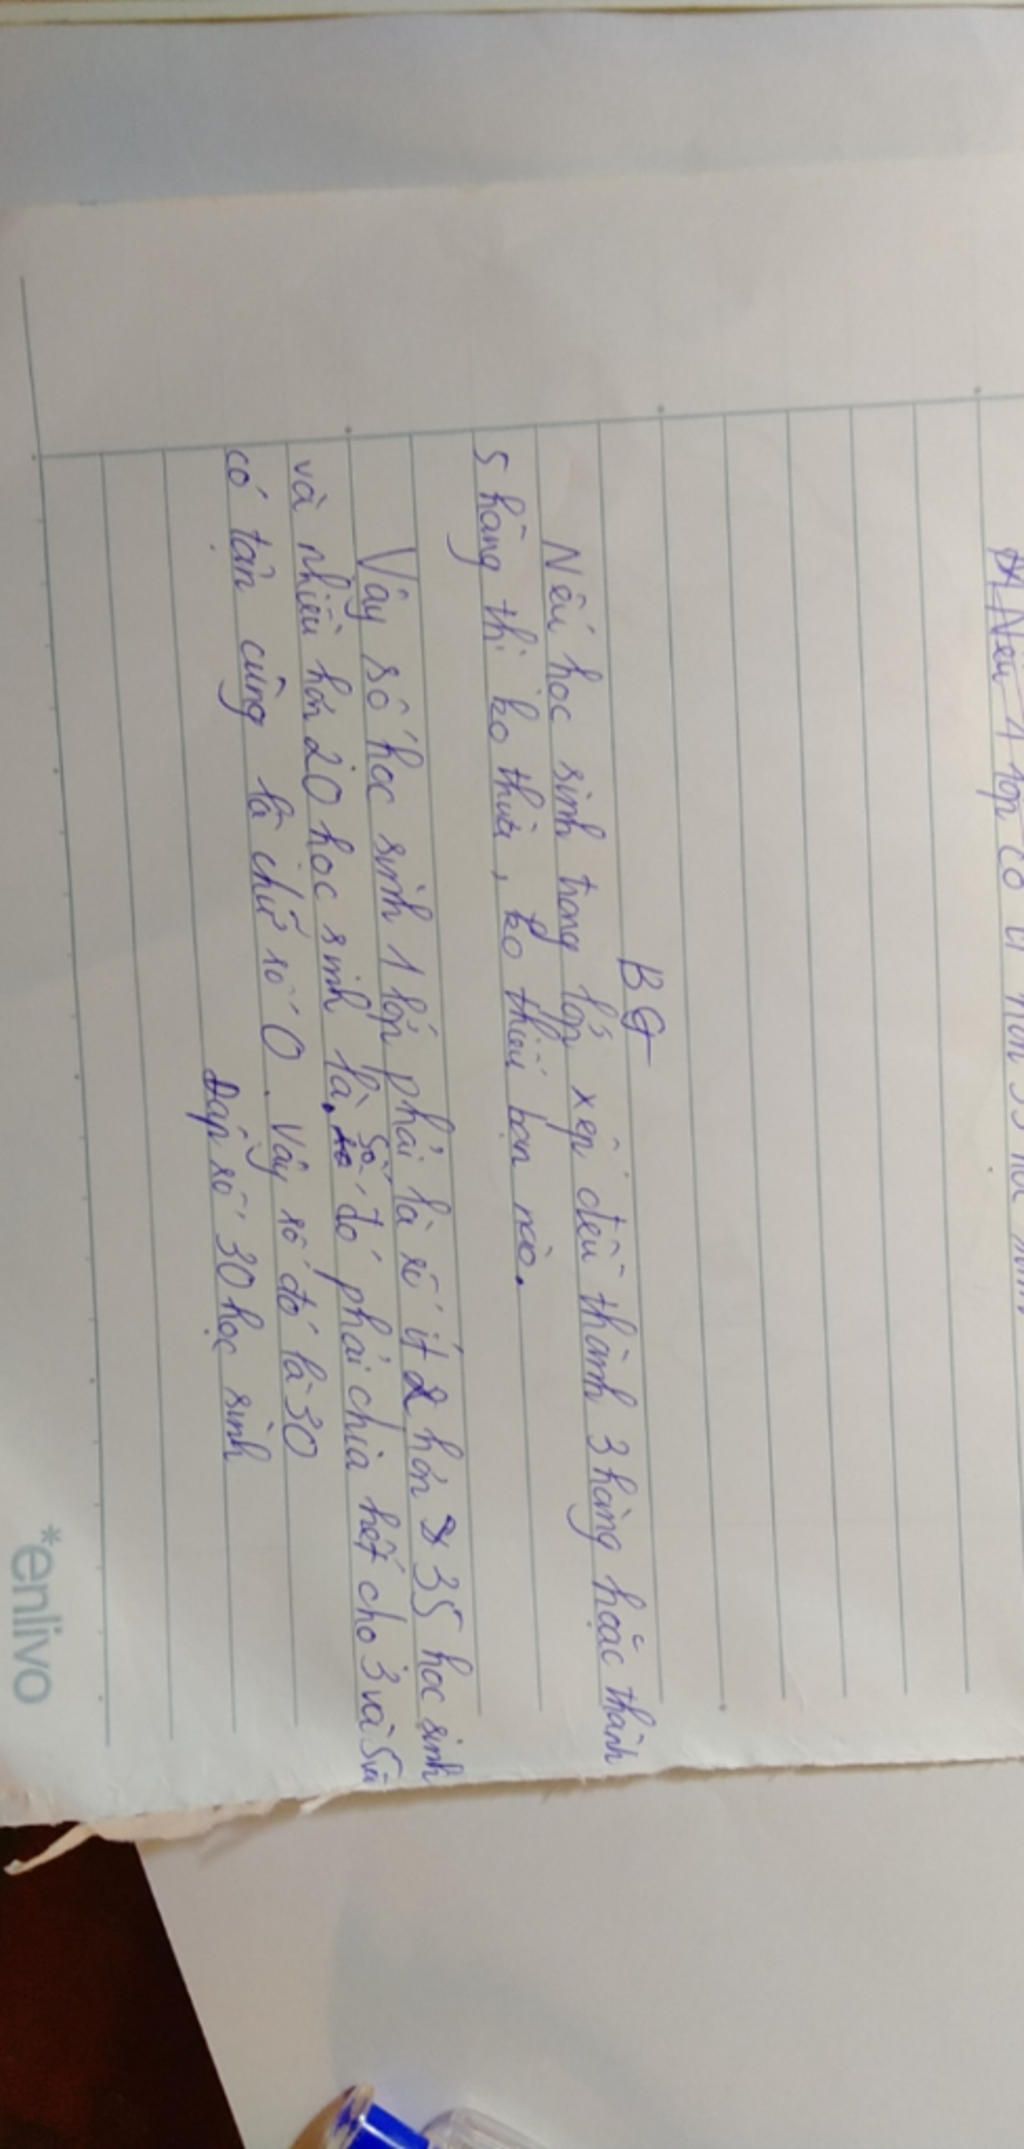 Nếu 1 lớp có ít hơn 35 học sinh
BG
Nếu học sinh trong lớp xếp đều thành 3 hàng hoặc thành
5 hàng thì ko thừa, ko thiếu bạn nào.
Vậy số học sinh 1 lớp phải là số ít hơn 35 học sinh
và nhiều hơn 20 học sinh là. Số đó phải chia hết cho 3 và 5 và
có tận cùng là chữ số 0. Vậy số đó là 30
Đáp số 30 học sinh
*enlivo